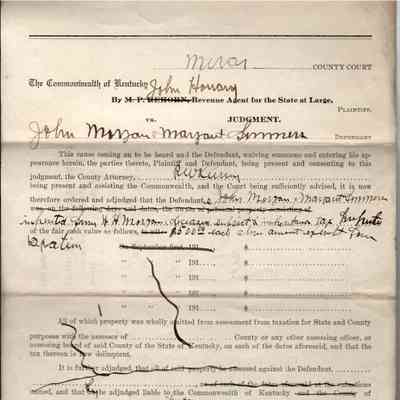 COUNTY COURT
The Commonwealth of Kentucky
By M. P. REHORN, Revenue Agent for the State at Large,
PLAINTIFF,
VS. JUDGMENT.
John Morgan Margaret Simmers
DEFENDANT
This cause coming on to be heard and the Defendant, waiving summons and entering his ap-
pearance herein, the parties thereto, Plaintiff and Defendant, being present and consenting to this
judgment, the County Attorney,
being present and assisting the Commonwealth, and the Court being sufficiently advised, it is now
therefore ordered and adjudged that the Defendant, John Morgan & Margaret Simmers
inherited from H H Morgan subject to inheritance tax property
of the fair cash value as follows, $500.00 each above amount exempt from
taxation
On September first, 191
" " 191 $
" " 191 $
" " 191 $
" " 191 $
All of which property was wholly omitted from assessment from taxation for State and County
purposes with the assessor of County or any other assessing officer, or
assessing board of said County of the State of Kentucky, on each of the dates aforesaid, and that the
tax thereon is now delinquent.
It is further adjudged, that all of said property be assessed against the Defendant.
as of each of the dates
tioned, and that he be adjudged liable to the Commonwealth of Kentucky and the County of